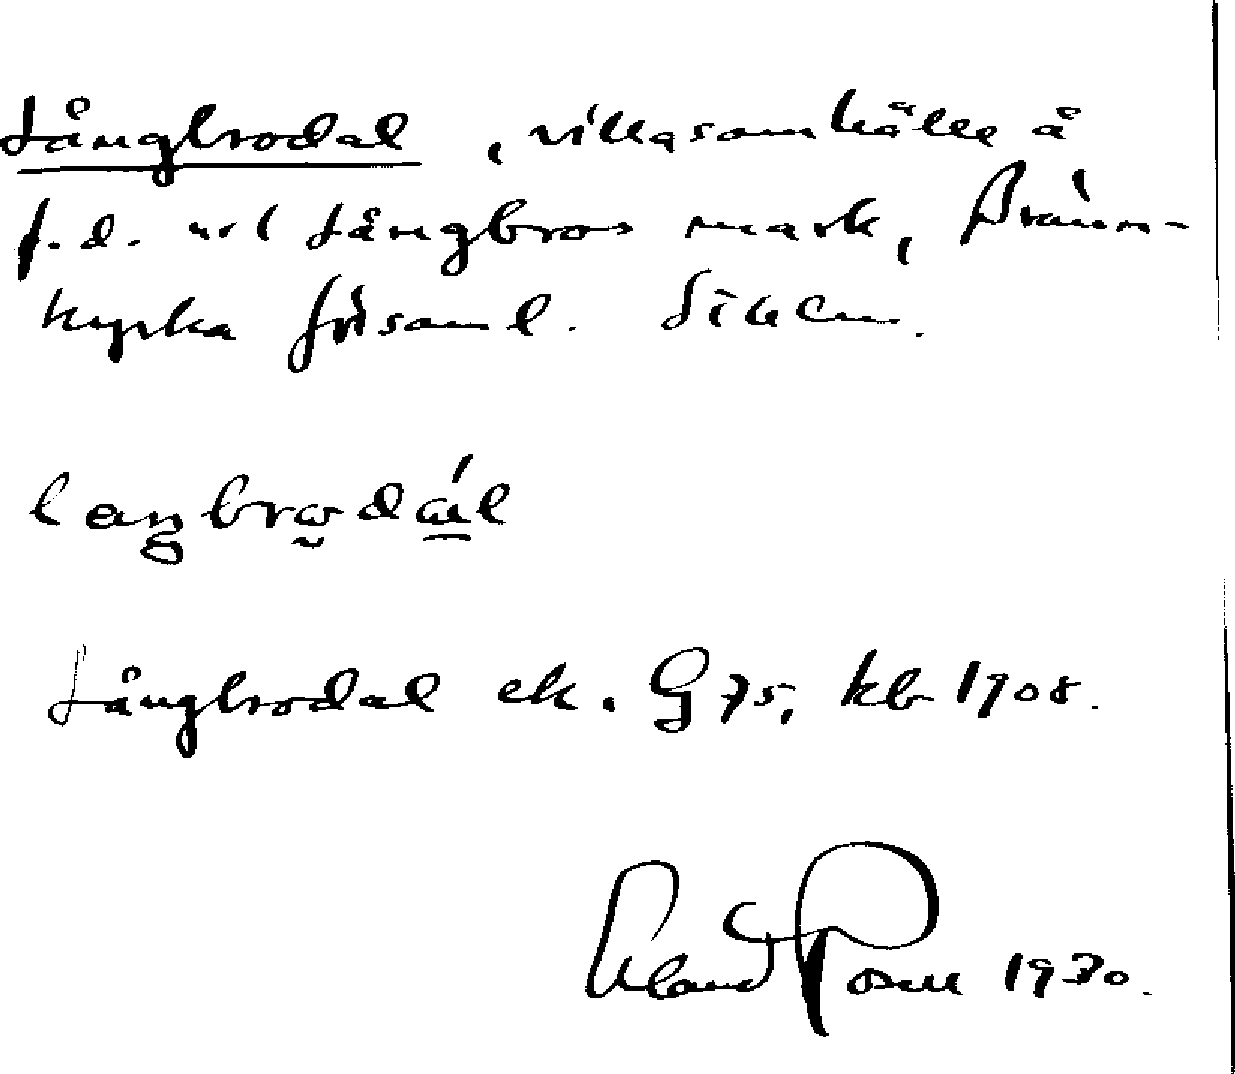 Långbrodal, villasamhälle å
f.d. utj Långbros mark, Bränn-
kyrka förs​aml. Sthlm.
laŋbrodál
Långbrodal ek. G 75, kb 1908.
Rosen 1930.